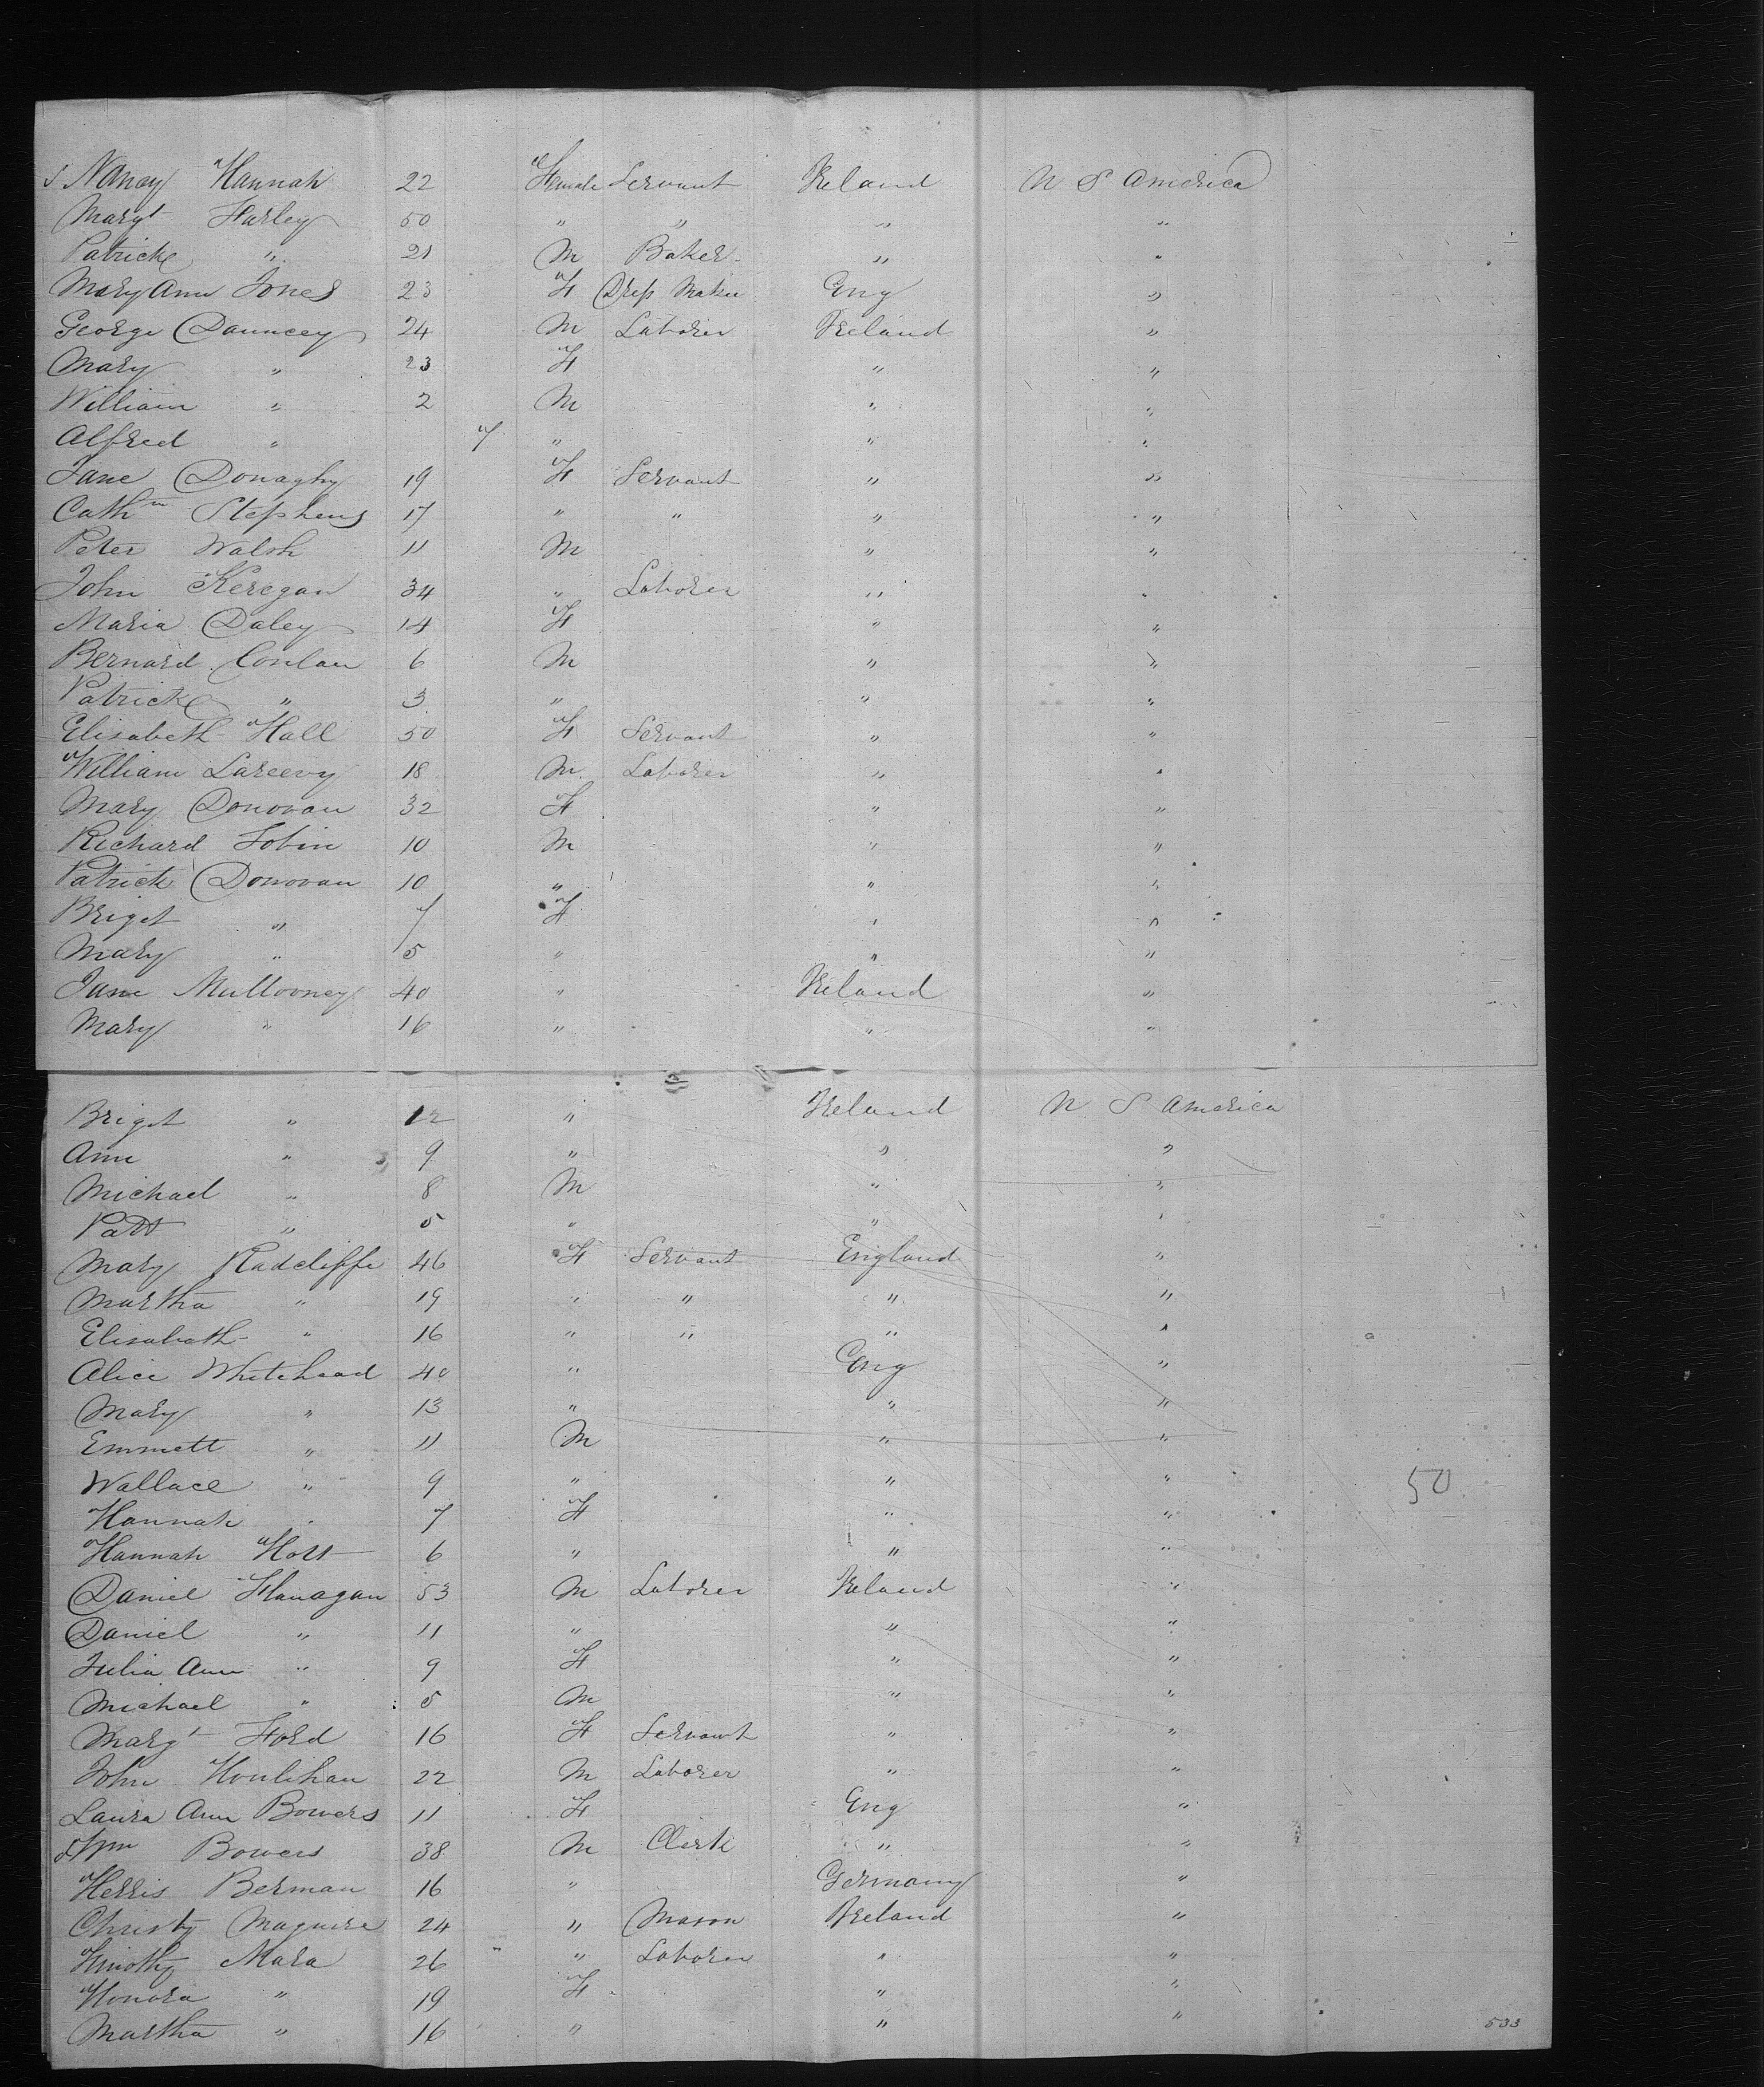 Nancy Hannah 22 Female Servant Ireland U S America
Margt Harley 50 " " " "
Patrick " 21 M Baker " "
Mary Ann Jones 23 F Dress Maker Eng "
George Dauncey 24 M Laborer Ireland "
Mary " 23 F " "
William " 2 M " "
Alfred " 7 " " "
Jane Donaghy 19 F Servant " "
Cathn Stephens 17 " " " "
Peter Walsh 11 M " "
John Keregan 34 " Laborer " "
Maria Daley 14 F " "
Bernard Conlan 6 M " "
Patrick " 3 " " "
Elisabeth Hall 50 F Servant " "
William Lareevy 18 M Laborer " "
Mary Donovan 32 F " "
Richard Tobin 10 M " "
Patrick Donovan 10 " " "
Briget " 7 F " "
Mary " 5 " " "
Jane Mullooney 40 " Ireland "
Mary " 16 " " "
Briget " 12 " Ireland U S America
Ann " 9 " " "
Michael " 8 M " "
Patt " 5 " " "
Mary Radcliffe 46 F Servant England "
Martha " 19 " " " "
Elisabath " 16 " " " "
Alice Whitehead 40 " Eng "
Mary " 13 " " "
Emmett " 11 M " "
Wallace " 9 " " " 50
Hannah " 7 F " "
Hannah Holt 6 " " "
Daniel Flanagan 53 M Laborer Ireland "
Daniel " 11 " " "
Julia Ann " 9 F " "
Michael " 5 M " "
Margt Ford 16 F Servant " "
John Houlihan 22 M Laborer " "
Laura Ann Bowers 11 F Eng "
Wm Bowers 38 M Clerk " "
Herris Berman 16 " Germany "
Christy Maguire 24 " Mason Ireland "
Timothy Mara 26 " Laborer " "
Honora " 19 F " "
Martha " 16 " " "
533